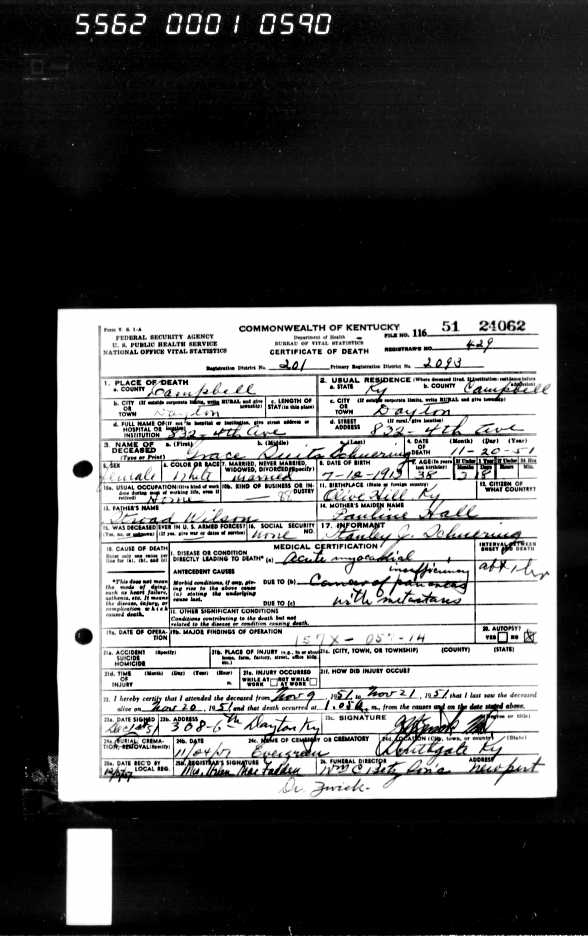 5562 0001 0590
Form V. S. 1-A
FEDERAL SECURITY AGENCY
U. S. PUBLIC HEALTH SERVICE
NATIONAL OFFICE VITAL STATISTICS
COMMONWEALTH OF KENTUCKY
Department of Health
BUREAU OF VITAL STATISTICS
CERTIFICATE OF DEATH
FILE NO. 116 51 24062
REGISTRAR'S NO. 429
Registration District No. 201 Primary Registration District No. 2093
1. PLACE OF DEATH
a. COUNTY Campbell
2. USUAL RESIDENCE (Where deceased lived. If institution: residence before admission)
a. STATE Ky b. COUNTY Campbell
b. CITY (If outside corporate limits, write RURAL and give township) OR TOWN Dayton
c. LENGTH OF STAY (in this place)
c. CITY (If outside corporate limits, write RURAL and give township) OR TOWN Dayton
d. FULL NAME OF (If not in hospital or institution, give street address or location) HOSPITAL OR INSTITUTION 832-4th Ave
d. STREET ADDRESS (If rural, give location) 832-4th Ave
3. NAME OF DECEASED (Type or Print) a. (First) Grace b. (Middle) c. (Last) Schuering
4. DATE OF DEATH (Month) (Day) (Year) 11-20-51
5. SEX female 6. COLOR OR RACE White 7. MARRIED, NEVER MARRIED, WIDOWED, DIVORCED (Specify) married
8. DATE OF BIRTH 7-12-1913 9. AGE (In years last birthday) 38 If Under 1 Year Months Days If Under 24 Hrs Hours Min.
10a. USUAL OCCUPATION (Give kind of work done during most of working life, even if retired) Home
10b. KIND OF BUSINESS OR INDUSTRY
11. BIRTHPLACE (State or foreign country) Olive Hill, Ky
12. CITIZEN OF WHAT COUNTRY?
13. FATHER'S NAME Wilson
14. MOTHER'S MAIDEN NAME Pauline Hall
15. WAS DECEASED EVER IN U. S. ARMED FORCES? (Yes, no, or unknown) (If yes, give war or dates of service)
16. SOCIAL SECURITY NO. none
17. INFORMANT Stanley J. Schuering
18. CAUSE OF DEATH
Enter only one cause per line for (a), (b), and (c)
MEDICAL CERTIFICATION
INTERVAL BETWEEN ONSET AND DEATH
I. DISEASE OR CONDITION DIRECTLY LEADING TO DEATH* (a) Acute myocardial insufficiency abt 1 hr
*This does not mean the mode of dying, such as heart failure, asthenia, etc. It means the disease, injury, or complication which caused death.
ANTECEDENT CAUSES
Morbid conditions, if any, giving rise to the above cause (a) stating the underlying cause last.
DUE TO (b) Cancer of pancreas
DUE TO (c) with metastasis
II. OTHER SIGNIFICANT CONDITIONS
Conditions contributing to the death but not related to the disease or condition causing death.
19a. DATE OF OPERATION 19b. MAJOR FINDINGS OF OPERATION
157X-057-14
20. AUTOPSY? YES NO X
21a. ACCIDENT SUICIDE HOMICIDE (Specify)
21b. PLACE OF INJURY (e.g., in or about home, farm, factory, street, office bldg., etc.)
21c. (CITY, TOWN, OR TOWNSHIP) (COUNTY) (STATE)
21d. TIME OF INJURY (Month) (Day) (Year) (Hour) m.
21e. INJURY OCCURRED WHILE AT WORK NOT WHILE AT WORK
21f. HOW DID INJURY OCCUR?
22. I hereby certify that I attended the deceased from Nov 9, 1951, to Nov 21, 1951, that I last saw the deceased
alive on Nov 20, 1951 and that death occurred at m., from the causes and on the date stated above.
23a. DATE SIGNED 23b. ADDRESS 308-6th Dayton Ky 23c. SIGNATURE (Degree or title)
24a. BURIAL, CREMATION, REMOVAL (Specify) 24b. DATE 24c. NAME OF CEMETERY OR CREMATORY Evergreen
24d. LOCATION (City, town, or county) (State) Southgate Ky
25a. DATE REC'D BY LOCAL REG. 25b. REGISTRAR'S SIGNATURE
26. FUNERAL DIRECTOR ADDRESS Newport
Dr. Zwick